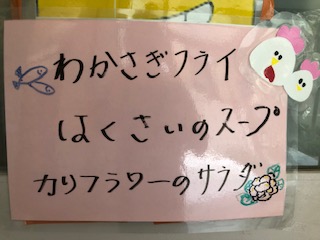 わかさぎフライ
はくさいのスープ
カリフラワーのサラダ